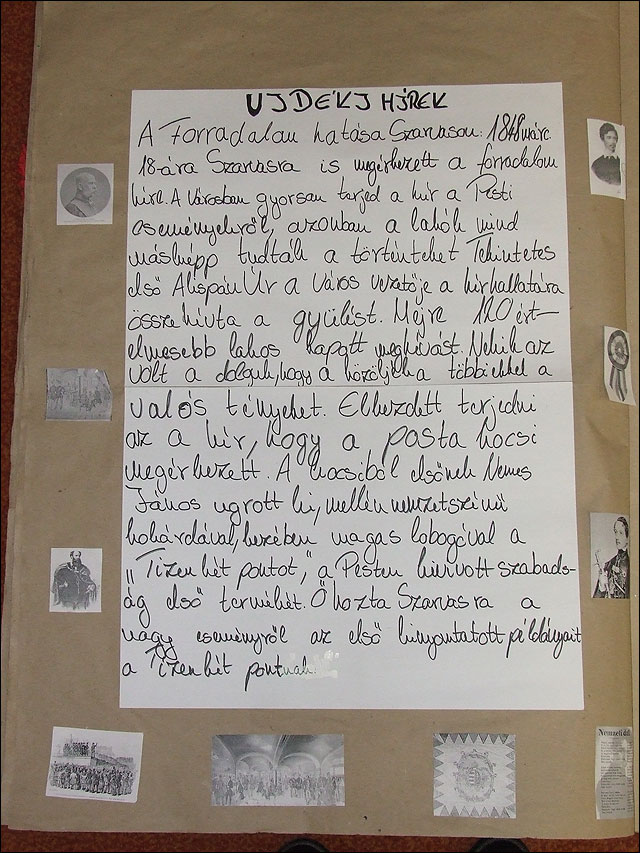 UJDEKJ HÍREK
A Forradalom hatása Szarvason: 1848 márc
18-ára Szarvasra is megérkezett a forradalom
híre. A városban gyorsan terjed a hír a Pesti
eseményekről, azonban a lakók mind
másképp tudták a történteket Tekintetes
első Alispán Úr a város vezetője a hír hallatára
össze hívta a gyűlést. Mejre 120 ért-
elmesebb lakos kapott meghívást. Nekik az
volt a dolguk, hogy a közöljék a többiekkel a
valós tényeket. Elkezdett terjedni
az a hír, hogy a posta kocsi
megérkezett. A kocsiból elsőnek Nemes
János ugrott ki, mellén nemzetszínű
kokárdával, kezében magas lobogóval a
"Tizenkét pontot," a Pesten kivívott szabads-
ág első termékét. Ő hozta Szarvasra a
nagy eseményről az első kinyomtatott példányait
a Tizenkét pontnak.
Nemzeti dal